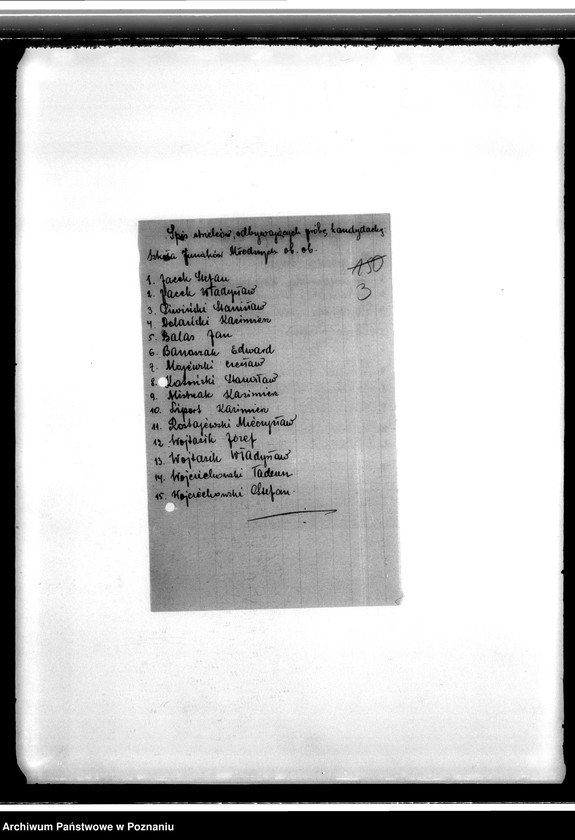 Spis strzelców, odbywających próbę kandydacką.
Szkoła Junaków Młodszych ob. ob.
150
3
1. Jacek Stefan
2. Jacek Władysław
3. Stanisław
4. Kazimierz
5. Balas Jan
6. Banaszak Edward
7. Majewski Czesław
8. Stanisław
9. Mistrzak Kazimierz
10. Lipert Kazimierz
11. Rostajewski Mieczysław
12. Wojtasik Józef
13. Wojtasik Władysław
14. Wojciechowski Tadeusz
15. Wojciechowski Stefan.
Archiwum Państwowe w Poznaniu